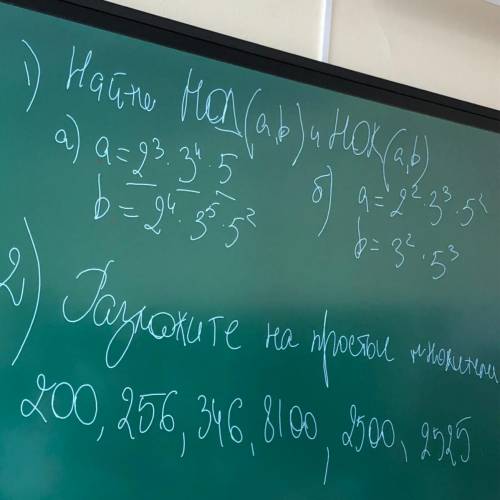 1) Найти НОД(a,b) и НОК(a,b)
а) a = 2³ · 3⁴ · 5
b = 2⁴ · 3⁵ · 5²
б) a = 2² · 3³ · 5²
b = 3² · 5³
2) Разложите на простые множители
200, 256, 346, 8100, 2500, 2525